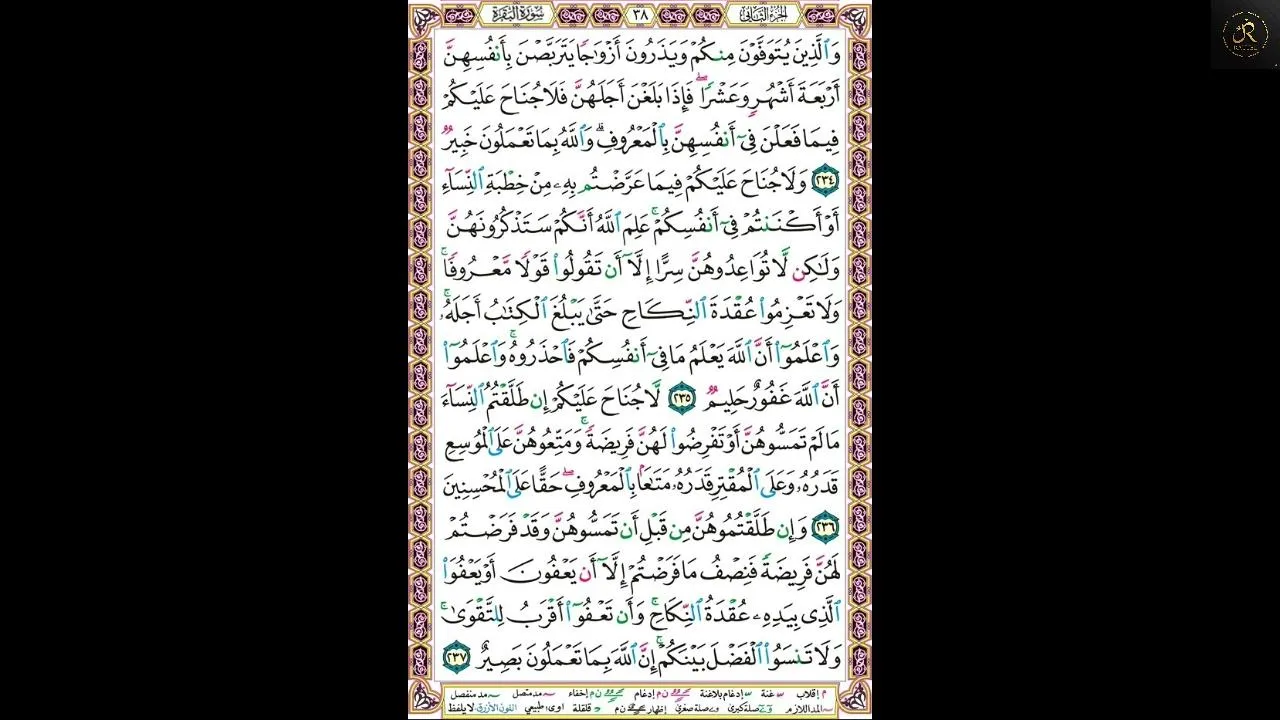 الجزء الثاني ٣٨ سورة البقرة
وَٱلَّذِينَ يُتَوَفَّوۡنَ مِنكُمۡ وَيَذَرُونَ أَزۡوَٰجٗا يَتَرَبَّصۡنَ بِأَنفُسِهِنَّ
أَرۡبَعَةَ أَشۡهُرٖ وَعَشۡرٗاۖ فَإِذَا بَلَغۡنَ أَجَلَهُنَّ فَلَا جُنَاحَ عَلَيۡكُمۡ
فِيمَا فَعَلۡنَ فِيٓ أَنفُسِهِنَّ بِٱلۡمَعۡرُوفِۗ وَٱللَّهُ بِمَا تَعۡمَلُونَ خَبِيرٞ
٢٣٤ وَلَا جُنَاحَ عَلَيۡكُمۡ فِيمَا عَرَّضۡتُم بِهِۦ مِنۡ خِطۡبَةِ ٱلنِّسَآءِ
أَوۡ أَكۡنَنتُمۡ فِيٓ أَنفُسِكُمۡۚ عَلِمَ ٱللَّهُ أَنَّكُمۡ سَتَذۡكُرُونَهُنَّ
وَلَٰكِن لَّا تُوَاعِدُوهُنَّ سِرًّا إِلَّآ أَن تَقُولُواْ قَوۡلٗا مَّعۡرُوفٗاۚ
وَلَا تَعۡزِمُواْ عُقۡدَةَ ٱلنِّكَاحِ حَتَّىٰ يَبۡلُغَ ٱلۡكِتَٰبُ أَجَلَهُۥۚ
وَٱعۡلَمُوٓاْ أَنَّ ٱللَّهَ يَعۡلَمُ مَا فِيٓ أَنفُسِكُمۡ فَٱحۡذَرُوهُۚ وَٱعۡلَمُوٓاْ
أَنَّ ٱللَّهَ غَفُورٌ حَلِيمٞ ٢٣٥ لَّا جُنَاحَ عَلَيۡكُمۡ إِن طَلَّقۡتُمُ ٱلنِّسَآءَ
مَا لَمۡ تَمَسُّوهُنَّ أَوۡ تَفۡرِضُواْ لَهُنَّ فَرِيضَةٗۚ وَمَتِّعُوهُنَّ عَلَى ٱلۡمُوسِعِ
قَدَرُهُۥ وَعَلَى ٱلۡمُقۡتِرِ قَدَرُهُۥ مَتَٰعَۢا بِٱلۡمَعۡرُوفِۖ حَقًّا عَلَى ٱلۡمُحۡسِنِينَ
٢٣٦ وَإِن طَلَّقۡتُمُوهُنَّ مِن قَبۡلِ أَن تَمَسُّوهُنَّ وَقَدۡ فَرَضۡتُمۡ
لَهُنَّ فَرِيضَةٗ فَنِصۡفُ مَا فَرَضۡتُمۡ إِلَّآ أَن يَعۡفُونَ أَوۡ يَعۡفُوَاْ
ٱلَّذِي بِيَدِهِۦ عُقۡدَةُ ٱلنِّكَاحِۚ وَأَن تَعۡفُوٓاْ أَقۡرَبُ لِلتَّقۡوَىٰۚ
وَلَا تَنسَوُاْ ٱلۡفَضۡلَ بَيۡنَكُمۡۚ إِنَّ ٱللَّهَ بِمَا تَعۡمَلُونَ بَصِيرٌ ٢٣٧
م إقلاب غنة إدغام بلاغنة ن م إدغام ن م إخفاء مد متصل مد منفصل
المد اللازم صلة كبرى صلة صغرى إظهار ن م قلقلة اوى، طبيعي اللون الأزرق لا يلفظ